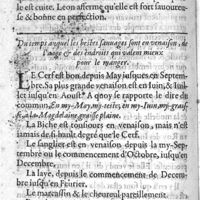 le est cuite. Leon afferme qu'elle est fort sauoureu-
se & bonne en perfection.
Du temps auquel les bestes sauuages sont en venaison, de
l'age & des endroits qui valent mieux
pour le manger.
LE Cerf est bon, depuis May iusques en Septem-
bre. Sa plus grande venaison est en Iuin, & Iuil-
let iusqu'en Aoust. A quoy se rapporte le dire
commun, En my-May, my-teste, en my-Iuin, my-graisse,
à la Magdelaine, graisse plaine.
La Biche est tousiours en venaison, mais n'est
iamais de si haut degré que le Cerf.
Le sanglier est en venaison depuis la my-Sep-
tembre ou le commencement d'Octobre, iusqu'en
Decembre.
La laye, depuis le commencement de Decem-
bre iusqu'en Feurier.
Le marcassin & le cheureul pareillement.